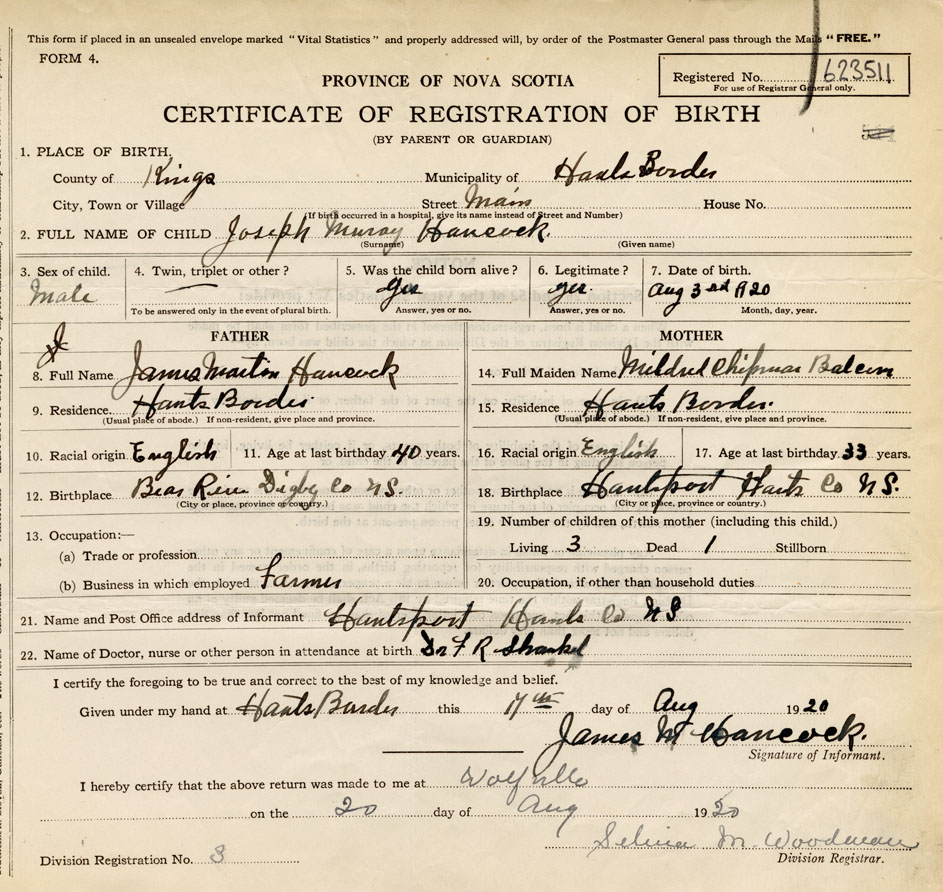 This form if placed in an unsealed envelope marked "Vital Statistics" and properly addressed will, by order of the Postmaster General pass through the Mails "FREE."
FORM 4.
Registered No. 623511
For use of Registrar General only.
PROVINCE OF NOVA SCOTIA
CERTIFICATE OF REGISTRATION OF BIRTH
(BY PARENT OR GUARDIAN)
1. PLACE OF BIRTH.
County of Kings Municipality of Hants Border
City, Town or Village Street Main House No.
(If birth occurred in a hospital, give its name instead of Street and Number)
2. FULL NAME OF CHILD Joseph Murray Hancock.
(Surname) (Given name)
3. Sex of child. 4. Twin, triplet or other? 5. Was the child born alive? 6. Legitimate? 7. Date of birth.
Male — yes yes. Aug 3rd 1920
To be answered only in the event of plural birth. Answer, yes or no. Answer, yes or no. Month, day, year.
FATHER MOTHER
8. Full Name James Martin Hancock 14. Full Maiden Name Mildred Chipman Balcom
9. Residence. Hants Border 15. Residence Hants Border.
(Usual place of abode.) If non-resident, give place and province. (Usual place of abode.) If non-resident, give place and province.
10. Racial origin English 11. Age at last birthday 40 years. 16. Racial origin English 17. Age at last birthday 33 years.
12. Birthplace Bear River Digby Co N.S. 18. Birthplace Hantsport Hants Co N.S.
(City or place, province or country.) (City or place, province or country.)
13. Occupation:— 19. Number of children of this mother (including this child.)
(a) Trade or profession Living 3 Dead 1 Stillborn
(b) Business in which employed Farmer 20. Occupation, if other than household duties
21. Name and Post Office address of Informant Hantsport Hants Co N S
22. Name of Doctor, nurse or other person in attendance at birth Dr F R Shankel
I certify the foregoing to be true and correct to the best of my knowledge and belief.
Given under my hand at Hants Border this 17th day of Aug 1920
James M Hancock.
Signature of Informant.
I hereby certify that the above return was made to me at Wolfville
on the 20 day of Aug 1920
Selina M. Woodman
Division Registration No. 3 Division Registrar.